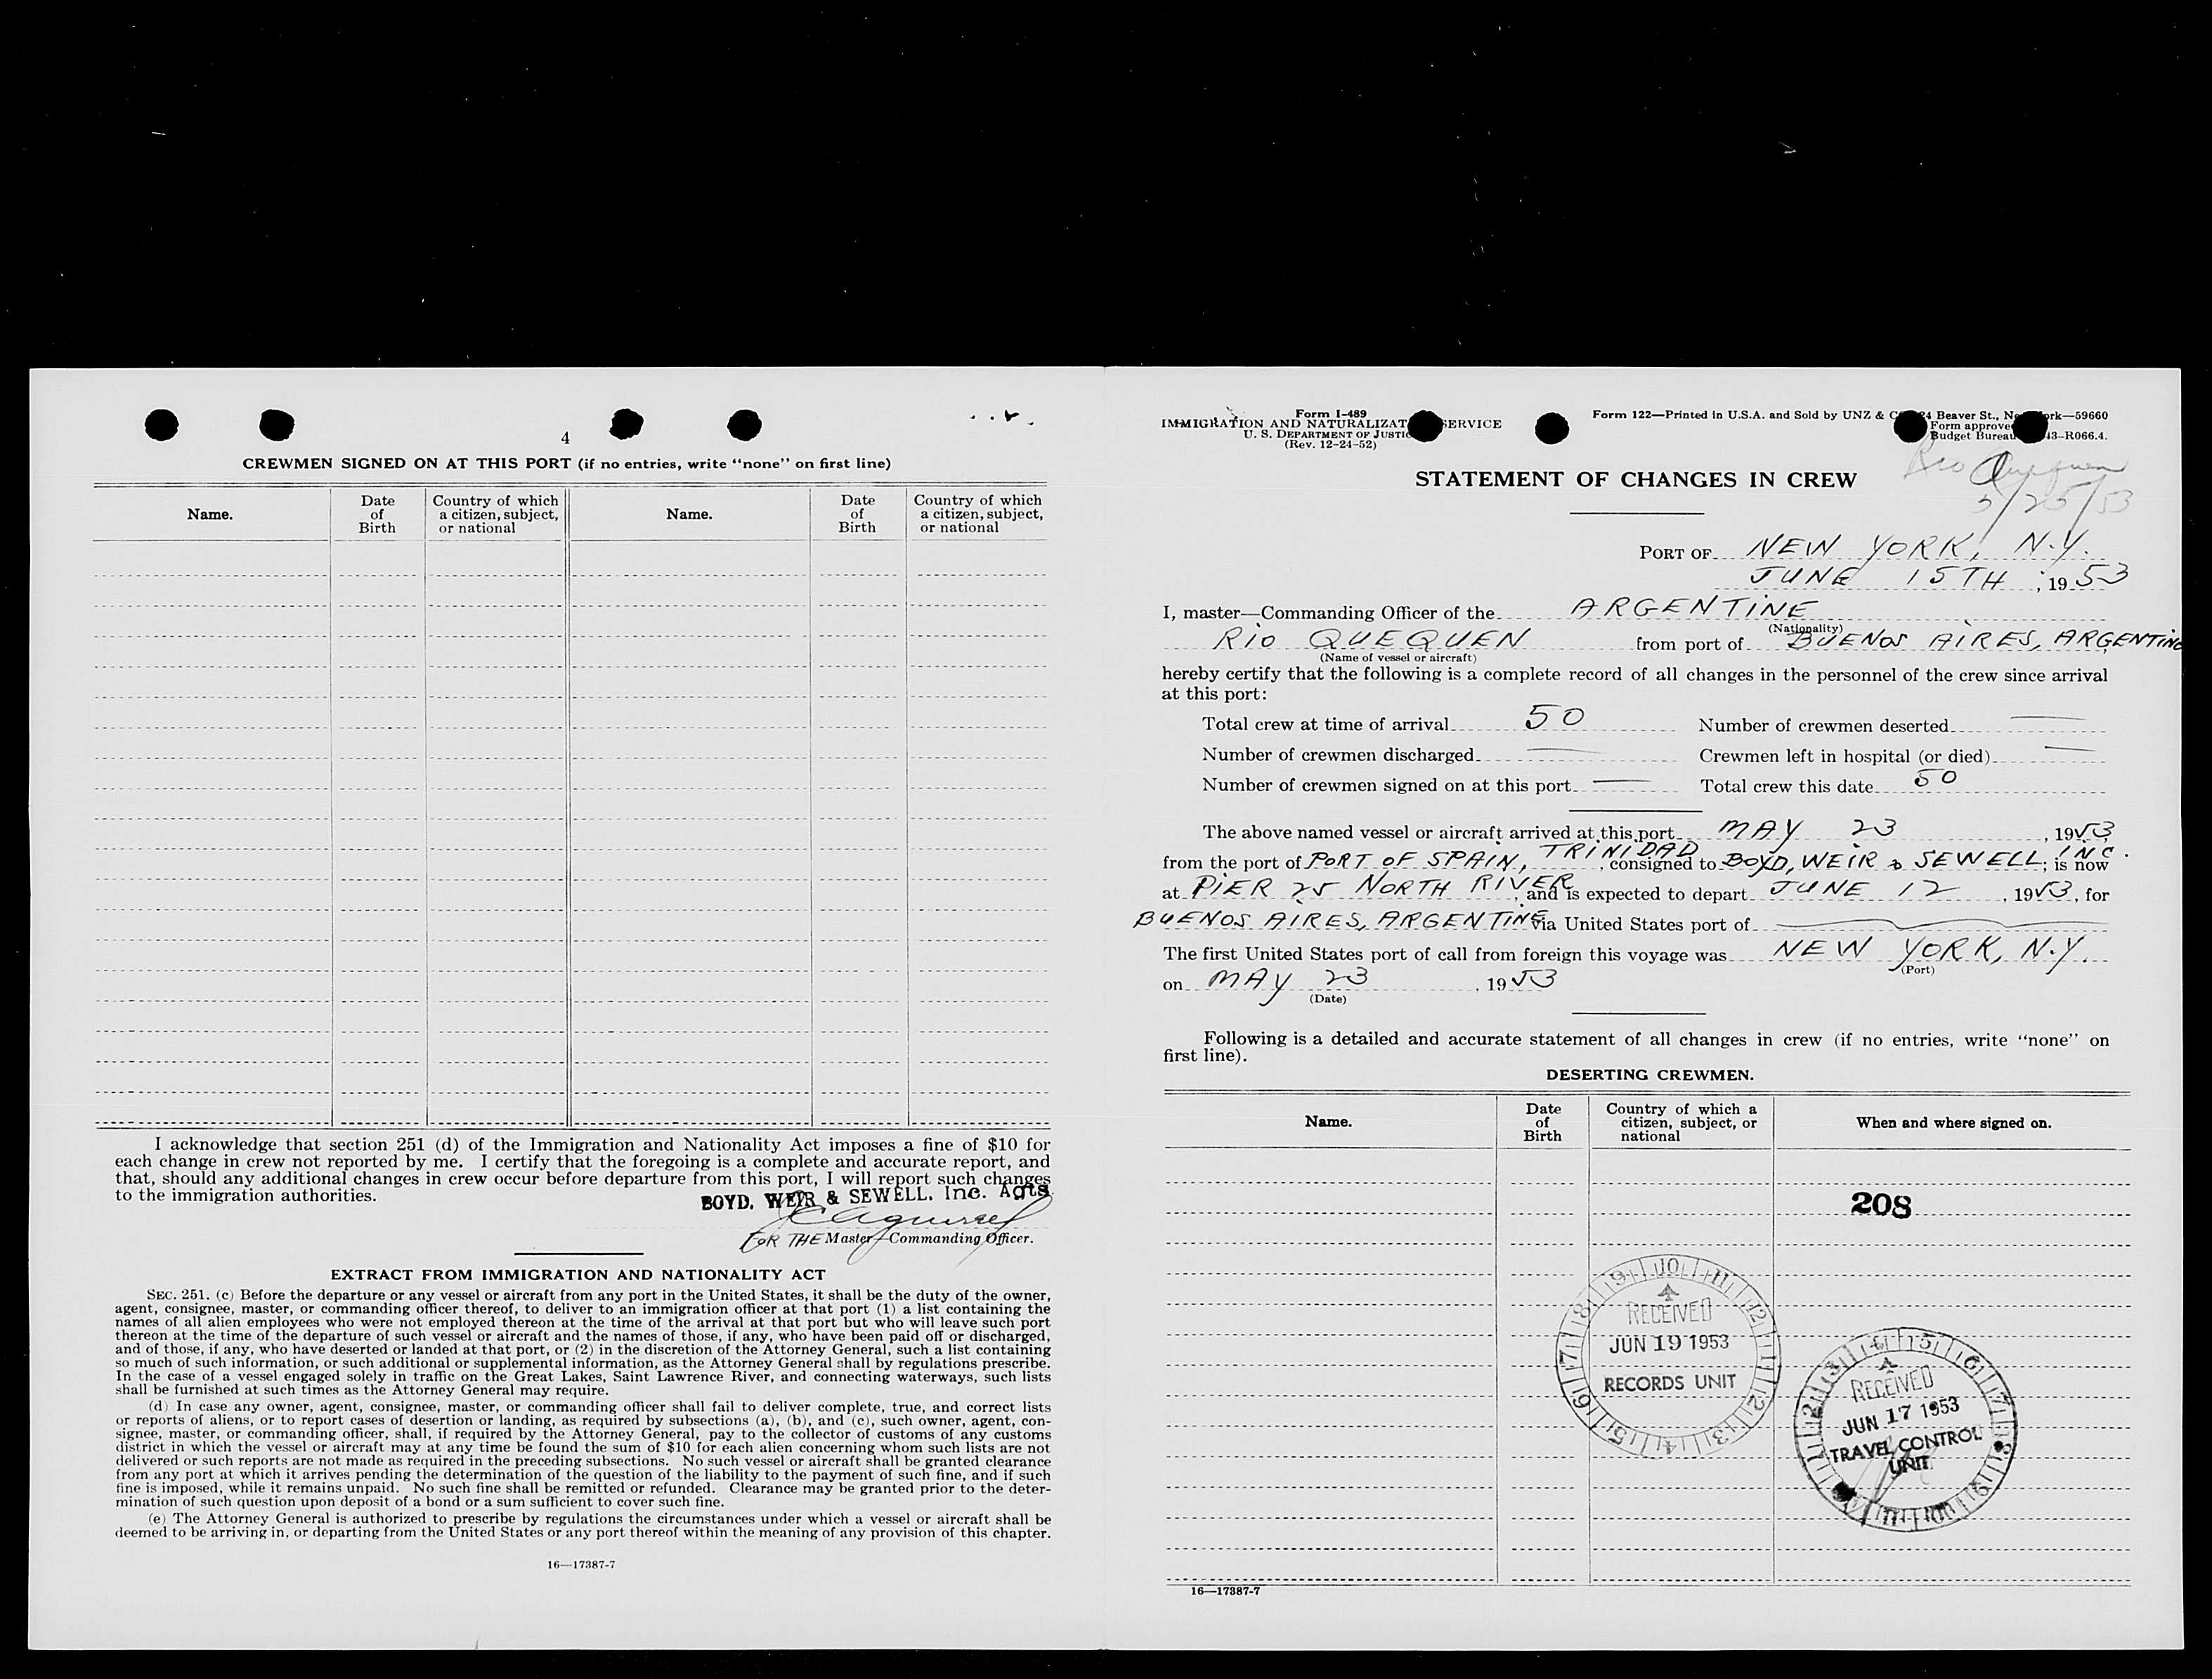 4
CREWMEN SIGNED ON AT THIS PORT (if no entries, write “none” on first line)
Name. Date of Birth Country of which a citizen, subject, or national Name. Date of Birth Country of which a citizen, subject, or national
I acknowledge that section 251 (d) of the Immigration and Nationality Act imposes a fine of $10 for
each change in crew not reported by me. I certify that the foregoing is a complete and accurate report, and
that, should any additional changes in crew occur before departure from this port, I will report such changes
to the immigration authorities.
BOYD, WEIR & SEWELL, Inc. Agts
FOR THE Master—Commanding Officer.
EXTRACT FROM IMMIGRATION AND NATIONALITY ACT
SEC. 251. (c) Before the departure or any vessel or aircraft from any port in the United States, it shall be the duty of the owner,
agent, consignee, master, or commanding officer thereof, to deliver to an immigration officer at that port (1) a list containing the
names of all alien employees who were not employed thereon at the time of the arrival at that port but who will leave such port
thereon at the time of the departure of such vessel or aircraft and the names of those, if any, who have been paid off or discharged,
and of those, if any, who have deserted or landed at that port, or (2) in the discretion of the Attorney General, such a list containing
so much of such information, or such additional or supplemental information, as the Attorney General shall by regulations prescribe.
In the case of a vessel engaged solely in traffic on the Great Lakes, Saint Lawrence River, and connecting waterways, such lists
shall be furnished at such times as the Attorney General may require.
(d) In case any owner, agent, consignee, master, or commanding officer shall fail to deliver complete, true, and correct lists
or reports of aliens, or to report cases of desertion or landing, as required by subsections (a), (b), and (c), such owner, agent, con-
signee, master, or commanding officer, shall, if required by the Attorney General, pay to the collector of customs of any customs
district in which the vessel or aircraft may at any time be found the sum of $10 for each alien concerning whom such lists are not
delivered or such reports are not made as required in the preceding subsections. No such vessel or aircraft shall be granted clearance
from any port at which it arrives pending the determination of the question of the liability to the payment of such fine, and if such
fine is imposed, while it remains unpaid. No such fine shall be remitted or refunded. Clearance may be granted prior to the deter-
mination of such question upon deposit of a bond or a sum sufficient to cover such fine.
(e) The Attorney General is authorized to prescribe by regulations the circumstances under which a vessel or aircraft shall be
deemed to be arriving in, or departing from the United States or any port thereof within the meaning of any provision of this chapter.
16—17387-7
Form I-489
IMMIGRATION AND NATURALIZAT SERVICE
U. S. DEPARTMENT OF JUSTIC
(Rev. 12-24-52)
Form 122—Printed in U.S.A. and Sold by UNZ & C 24 Beaver St., Ne rk—59660
Form approve
Budget Bureau 43-R066.4.
Rio Quequen
5/25/53
STATEMENT OF CHANGES IN CREW
PORT OF NEW YORK, N.Y.
JUNE 15TH, 1953
I, master—Commanding Officer of the ARGENTINE
(Nationality)
RIO QUEQUEN from port of BUENOS AIRES, ARGENTINE
(Name of vessel or aircraft)
hereby certify that the following is a complete record of all changes in the personnel of the crew since arrival
at this port:
Total crew at time of arrival 50 Number of crewmen deserted —
Number of crewmen discharged — Crewmen left in hospital (or died) —
Number of crewmen signed on at this port — Total crew this date 50
The above named vessel or aircraft arrived at this port MAY 23, 1953,
from the port of PORT OF SPAIN, TRINIDAD, consigned to BOYD, WEIR & SEWELL, INC.; is now
at PIER 25 NORTH RIVER, and is expected to depart JUNE 12, 1953, for
BUENOS AIRES, ARGENTINE via United States port of
The first United States port of call from foreign this voyage was NEW YORK, N.Y.
(Port)
on MAY 23, 1953
(Date)
Following is a detailed and accurate statement of all changes in crew (if no entries, write “none” on
first line).
DESERTING CREWMEN.
Name. Date of Birth Country of which a citizen, subject, or national When and where signed on.
208
RECEIVED
JUN 19 1953
RECORDS UNIT
RECEIVED
JUN 17 1953
TRAVEL CONTROL
UNIT
16—17387-7